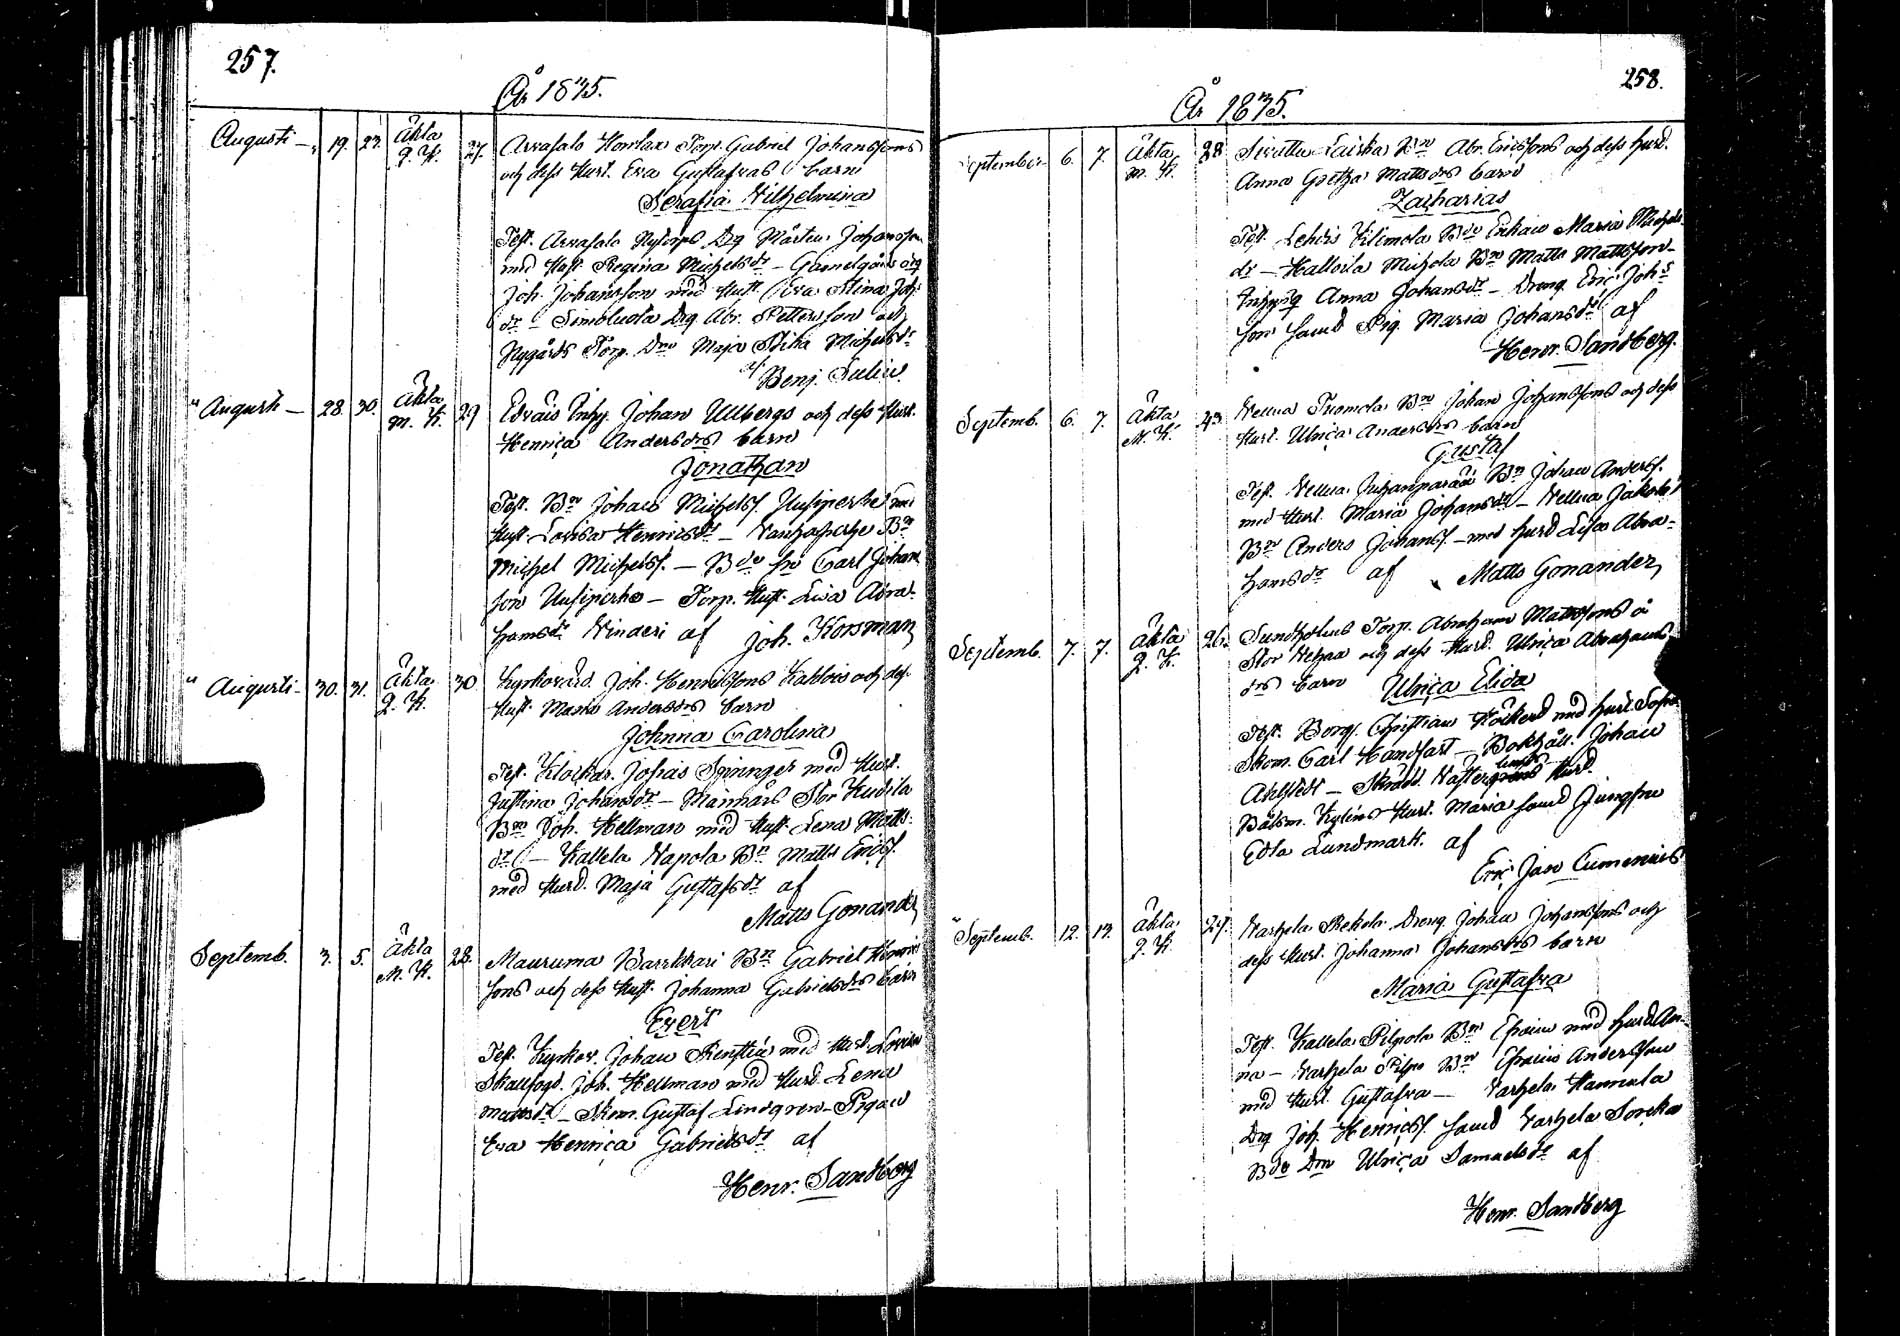 257.
År 1835.
Augusti 19. 23. Äkta Q. K. 27. Arvasalo Torp. Gabriel Johanssons
och dess Hust. Eva Gustafsdrs barn
Serafia Wilhelmina
Test. Arvasalo Nytorps Drg Mårten Johansson
med Hust. Regina Michelsdr – Gammelgårds drg
Joh. Johansson med Hust. Eva Stina Joh.
dr – Simoluota Drg Abr. Pettersson och
Nygårds Torp. Dtr Maja Stika Michelsdr
af Benj. Salin.
" Augusti – 28. 30. Äkta M. K. 29 Edväis Inhy. Johan Ullbergs och dess Hust.
Henrica Andersdrs barn
Jonathan
Test. Bn Johan Michelss. Uusiperhe med
Hust. Lovisa Henricsdr – Vanhaperhe Bn
Michel Michelss. – Bde sn Carl Johans
son Uusiperhe – Torp. Hust. Lisa Abra-
hamsdr Vinderi af Joh. Korsman
" Augusti – 30. 31. Äkta Q. K. 30. Kyrkovärd Joh. Henricssons Kahlois och dess
Hust. Maria Andersdrs barn
Johnna Carolina
Test. Klockar. Josias Spininger med Hust.
Justina Johansdr – Männäis Stor Kudila
Bn Joh. Hellman med Hust. Lena Matts-
dr – Kallela Napola Bn Matts Erics.
med Hust. Maja Gustafsdr af
Matts Gonander
Septemb. 3. 5. Äkta M. K. 28. Mauruma Gabriel Henrics
sons och dess Hust. Johanna Gabrielsdrs barn
Evert
Test. Kyrkov. Johan Renstén med Hust. Lovisa
Skallfogd. Joh. Hellman med Hust. Lena
Mattsdr – Skom. Gustaf Lindgren – Pigan
Eva Henrica Gabrielsdr af
Henr. Sandberg
258.
År 1835.
September 6. 7. Äkta M. K. 28 Sirittu Laiska Bn Abr. Ericssons och dess hust.
Anna Gretha Mattsdrs barn
Zacharias
Test. Lehdis Kilimola Bde Enkan Maria Michels
dr – Halloila Michola Bn Matts Mattsson –
Inhyspig Anna Johansdr – Dreng Eric Johs
son samt Pig. Maria Johansdr af
Henr. Sandberg.
Septemb. 6. 7. Äkta M. K. 43. Nelma Tuomola Bn Johan Johanssons och dess
Hust. Ulrica Andersdrs barn
Gustaf
Test. Nelma Bn Johan Anderss.
med Hust. Maria Johansdr – Nelma Jakola
Bn Anders Johanss. – med hust Lisa Abra-
hamsdr af Matts Gonander,
Septemb. 7. 7. Äkta Q. K. 26. Sundholms Torp. Abraham Mattssons å
Stor Wehaa och dess Hust. Ulrica Abrahams
drs barn Ulrica Elida
Test. Borg. Christian Köckerd med hust. Sofia
Skom. Carl Handfast – Bokhåll. Johan
Ahlstedt – Hust.
Båtsm. Kyléns Hust. Maria samt Jungfru
Edla Lundmark. af
Eric Jan Cumenius
" Septemb. 12. 13. Äkta Q. K. 27. Varhela Rekola Dreng Johan Johanssons och
dess Hust. Johanna Johansdrs barn
Maria Gustafva
Test. Kallela Pilpola Bn Efraim med hust An-
na – Varhela Pilpo Bn Efraim Andersson
med Hust. Gustafva – Varhela Hannula
Drg Joh. Henricss. samt Varhela Soncka
Bde Dtr Ulrica Samuelsdr af
Henr. Sandberg